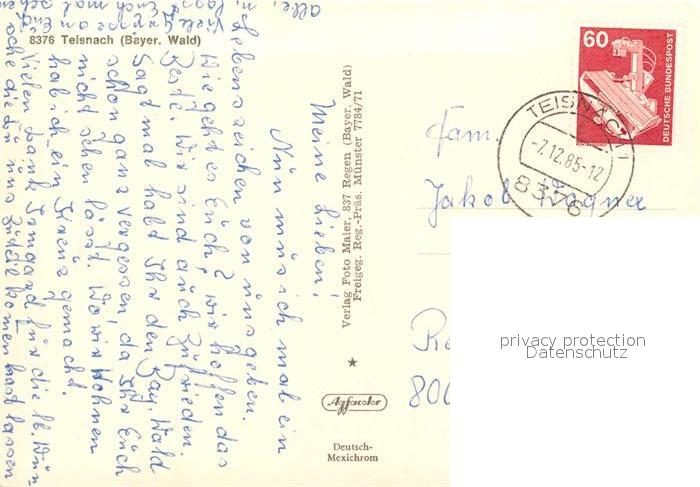 8376 Teisnach (Bayer. Wald)
Meine Lieben!
Nun muss ich mal ein
Lebenszeichen von uns geben.
Wie geht es Euch? wir hoffen das
Beste. Wir sind auch zufrieden.
Sagt mal habt Ihr den Bay. Wald
schon ganz vergessen, da Ihr Euch
nicht sehen lässt. Wo wir Wohnen
hab ich ein Kreuz gemacht.
Vielen Dank Irmgard für die lb. Wün
sche die Du uns zukommen hast lassen
alle,
Verlag Foto Maier, 837 Regen (Bayer. Wald)
Freigeg. Reg.-Präs. Münster 7784/71
Agfacolor
Deutsch-
Mexichrom
60
DEUTSCHE BUNDESPOST
TEISNACH 1
-7.12.85-12
8376
Fam.
Jakob Wagner
Re
800
privacy protection
Datenschutz